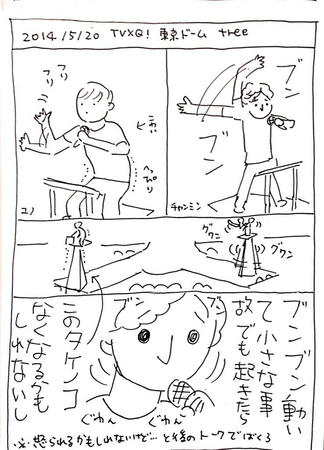 2014/5/20 TVXQ! 東京ドーム tree
フリ
フリ
こわい
へっぴり
ユノ
ブン
ブン
チャンミン
グワン
グワン
ブンブン動い
て小さな事
故でも起きたら
ブン
ブン
このタケノコ
なくなるかも
しれないし
ぐわん
ぐわん
※怒られるかもしれないけど…と後のトークでばくろ